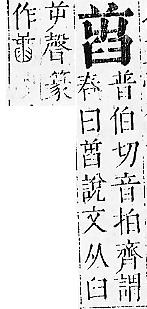 普伯切音拍齊謂
舂曰說文从臼
屰聲篆
作